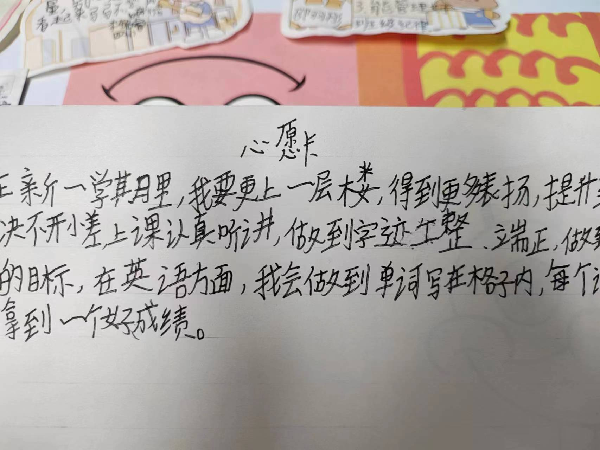 心愿卡
新一学期里,我要更上一层楼,得到更多表扬,提升
决不开小差上课认真听讲,做到字迹工整、端正,做到
的目标,在英语方面,我会做到单词写在格子内,每个
拿到一个好成绩。